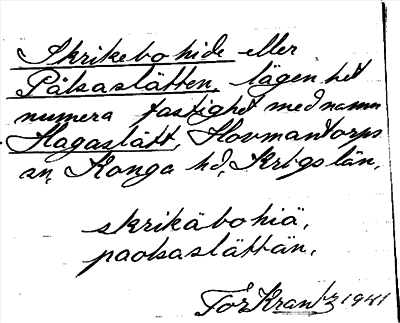 Skrikebohide eller
Pålsaslätten, lägenhet
numera fastighet med namn
Hagaslätt, Hovmantorps
sn, Konga hd, Krbgs län.
skrikäbohiä,
paolsaslättän,
Tor Krantz 1941